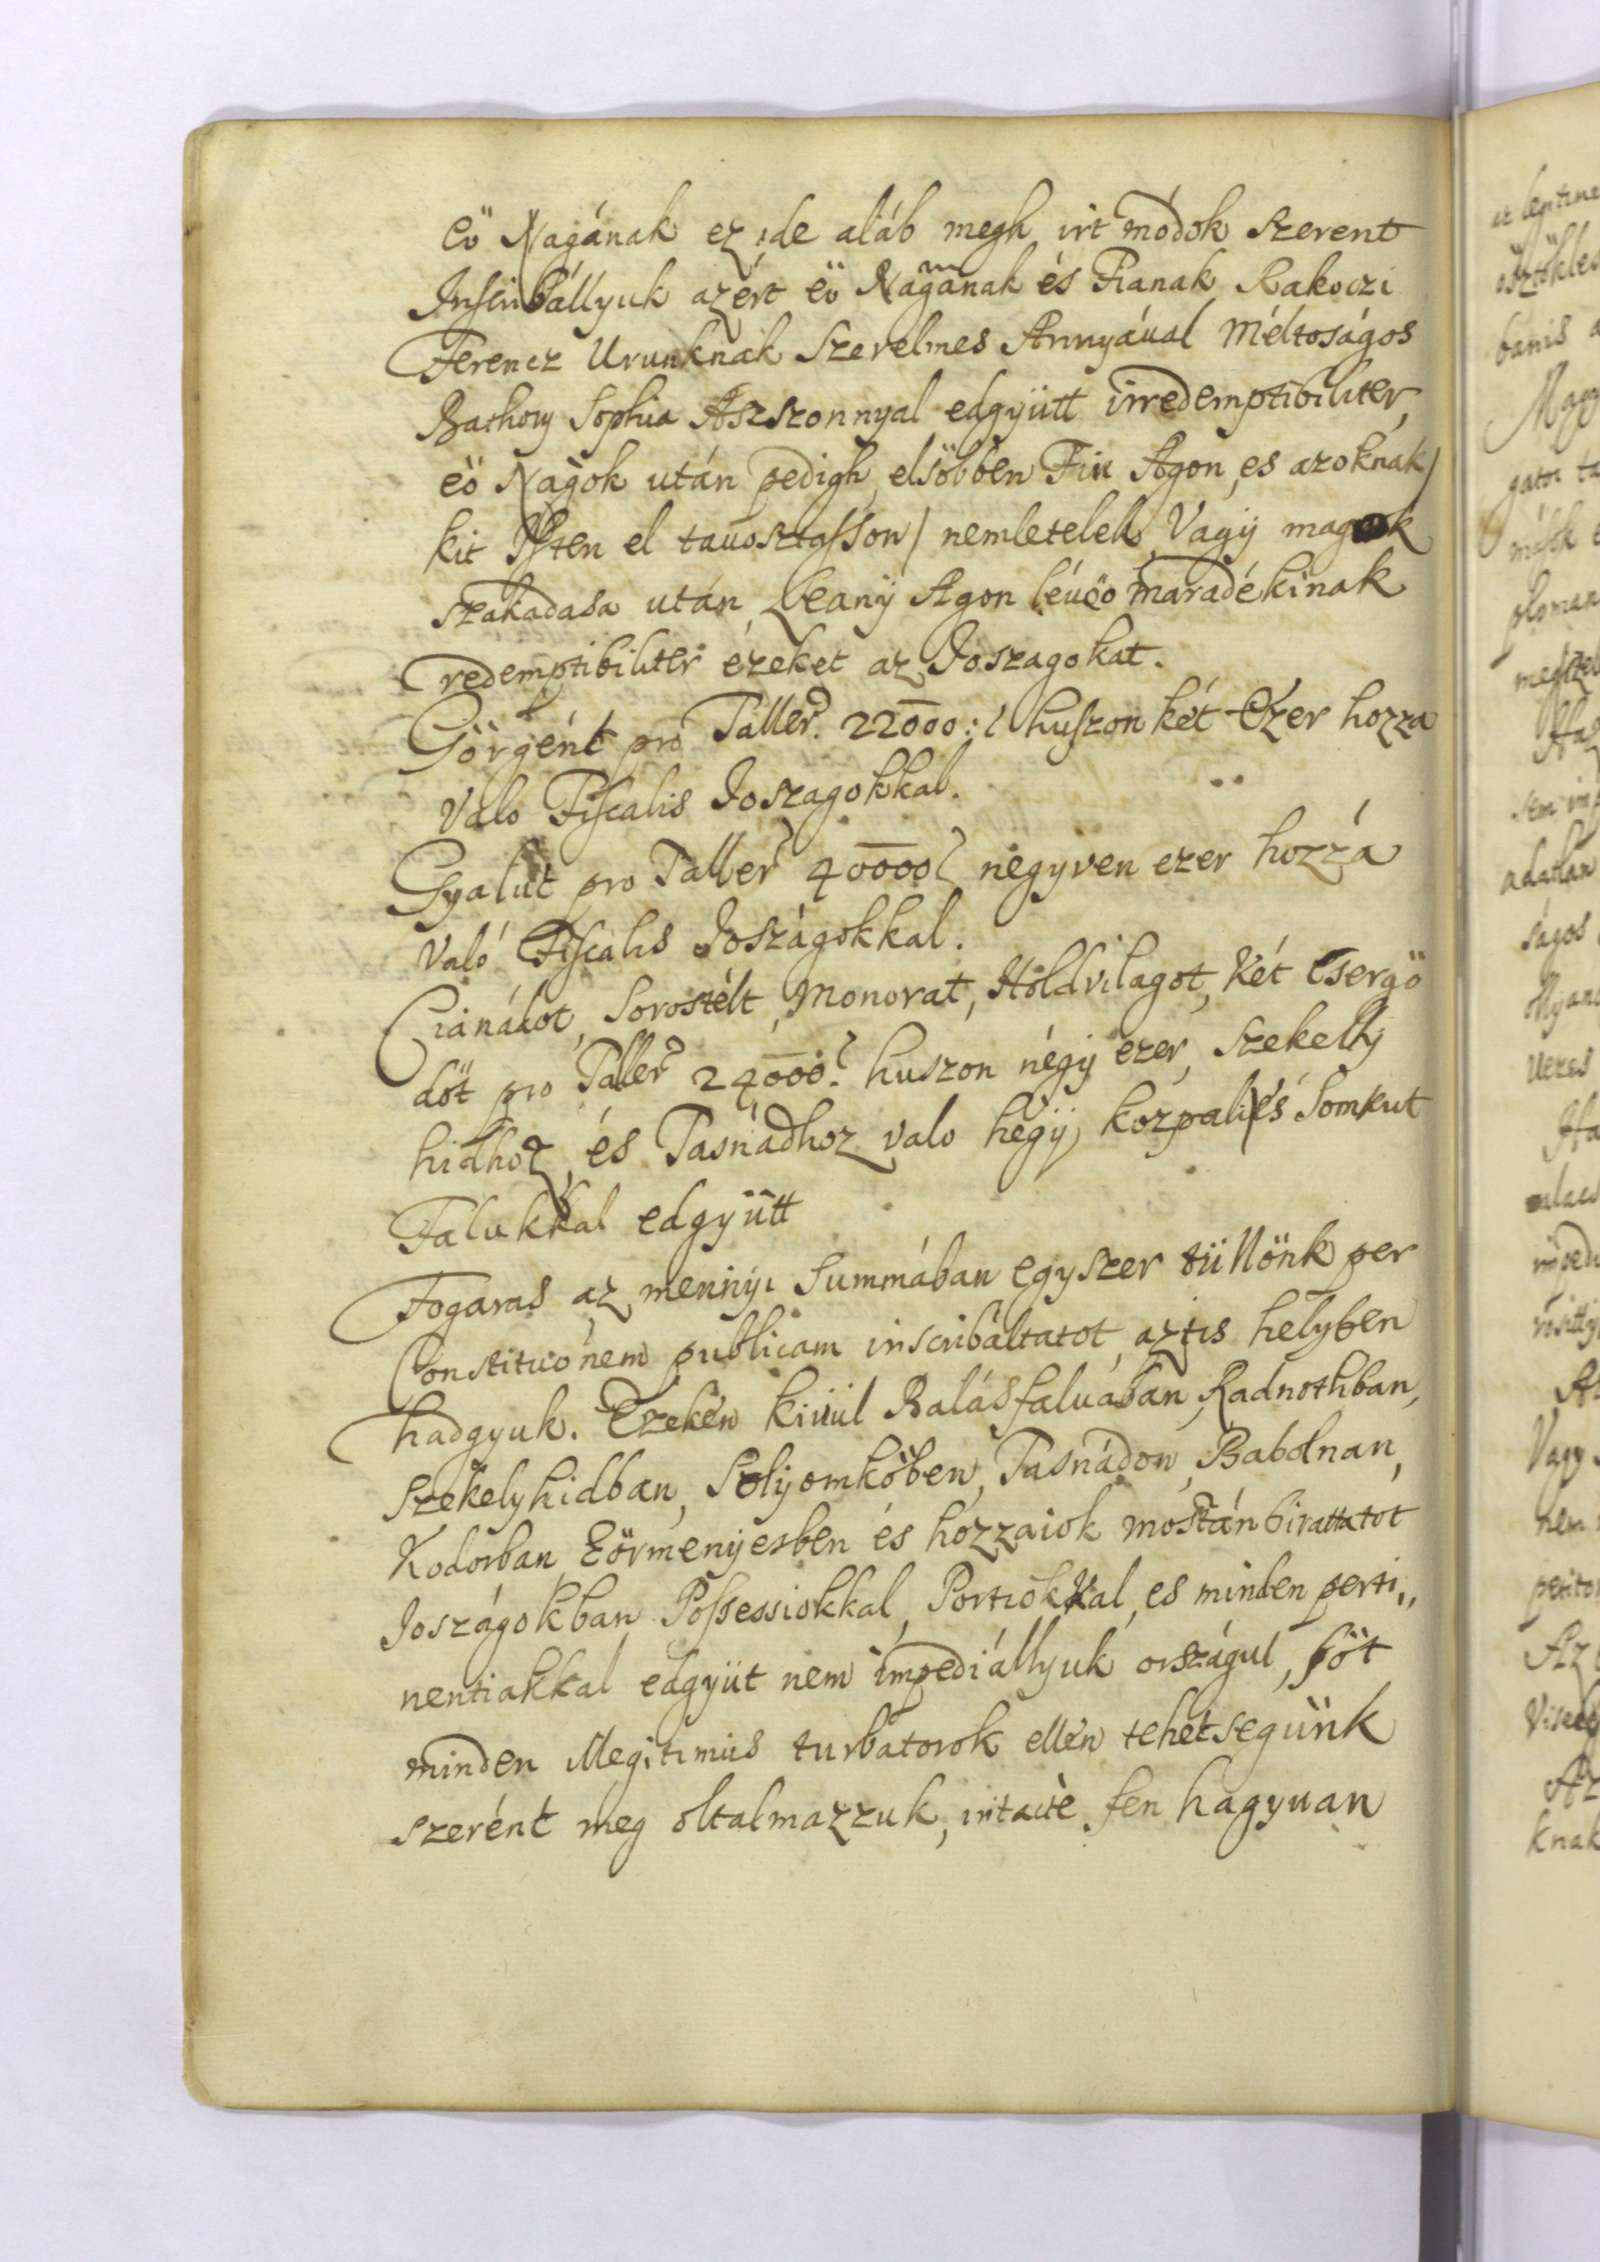 eö Nagának ez ide aláb megh irt módok szerent
Inscribállyuk azért eö Nagának és Fianak Rakoczi
Ferencz Urunknak szerelmes Annyáual Méltoságos
Bathory Sophia Aszszonnyal edgyütt irredemptibiliter,
eö Nagok után pedigh elsöbben Fiu Agon, es azoknak /
kit Isten el tauosztasson / nemletelek Vagÿ magok
szakadasa után, Leanÿ Agon léuöo maradékinak
redemptibiliter ezeket az Joszagokat.
Görgént pro Taller. 22000: huszon két Ezer hozza
Valo Fiscalis Joszagokkal.
Gyalut pro Taller 40000 negyven ezer hozzá
Való Fiscalis Joszágokkal.
Cianádot, Sorostélt, Monorat, Holdvilagot, Két Csergö
döt pro Taller 24000. huszon négÿ ezer, Szekelÿ
hidhoz, és Tasnádhoz valo hegÿ, kozpali és Somkut
Falukkal edgyütt
Fogaras az mennyi Summában egyszer tüllönk per
Constitutionem publicam inscribáltatot, aztis helyben
hadgyuk. Ezeken kiuül Balásfaluában, Radnothban,
Szekelyhidban, Solÿomköben, Tasnádon, Babolnan,
Kodorban Eörmenÿesben és hozzaiok mostán birattatot
Joszágokban Possessiokkal, Portiokkal, es minden perti,,
nentiakkal edgyüt nem impediállyuk országul, söt
minden illegitimus turbatorok ellen tehetsegünk
szerént meg oltalmazzuk, intacte fen hagyuan